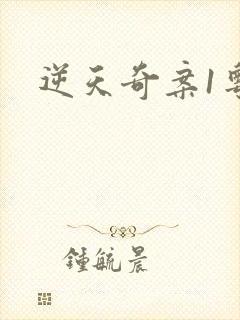 逆天奇案1
鍾毓晨